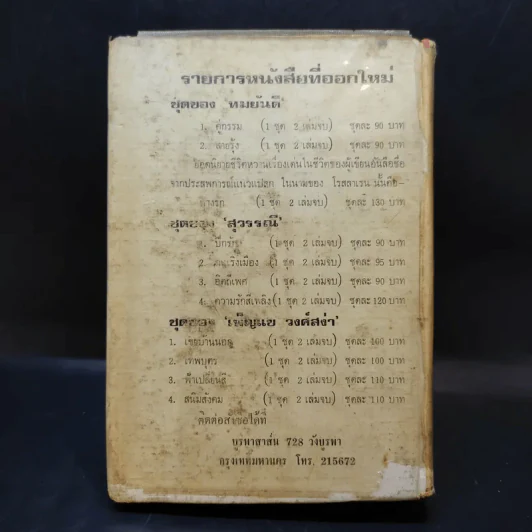 รายการหนังสือที่ออกใหม่
ชุดของ 'ทมยันตี'
1. คู่กรรม (1 ชุด 2 เล่มจบ) ชุดละ 90 บาท
2. สายรุ้ง (1 ชุด 2 เล่มจบ) ชุดละ 90 บาท
ชีวิตหวานเรื่องเด่นในชีวิตของผู้เขียนอันลือชื่อ
จากประสพการณ์แนวแปลก ในนามของ โรสลาเรน นั้นคือ-
(1 ชุด 2 เล่มจบ) ชุดละ 130 บาท
ชุดของ 'สุวรรณี'
1. (1 ชุด 2 เล่มจบ) ชุดละ 90 บาท
2. เริงเมือง (1 ชุด 2 เล่มจบ) ชุดละ 95 บาท
3. อิตถีเพศ (1 ชุด 2 เล่มจบ) ชุดละ 90 บาท
4. ความรักสีเพลิง (1 ชุด 2 เล่มจบ) ชุดละ 120 บาท
ชุดของ 'เพ็ญแข วงศ์สง่า'
1. เขยบ้านนอก (1 ชุด 2 เล่มจบ) ชุดละ 100 บาท
2. เทพบุตร (1 ชุด 2 เล่มจบ) ชุดละ 100 บาท
3. ฟ้าเปลี่ยนสี (1 ชุด 2 เล่มจบ) ชุดละ 110 บาท
4. สนิมสังคม (1 ชุด 2 เล่มจบ) ชุดละ 110 บาท
ติดต่อสั่งซื้อได้ที่
บูรพาสาส์น 728 วังบูรพา
กรุงเทพมหานคร โทร. 215672